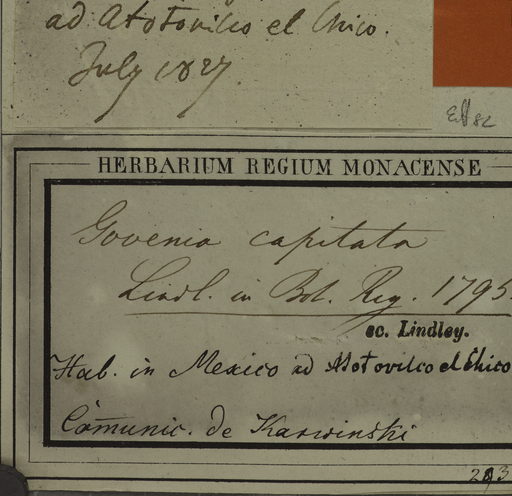 ad Atotovilco el Chico.
July 1827.
HERBARIUM REGIUM MONACENSE
Govenia capitata
Lindl. in Bot. Reg. 1795.
ec. Lindley.
Hab. in Mexico ad Atotovilco el Chico
Comunic. de Karwinski